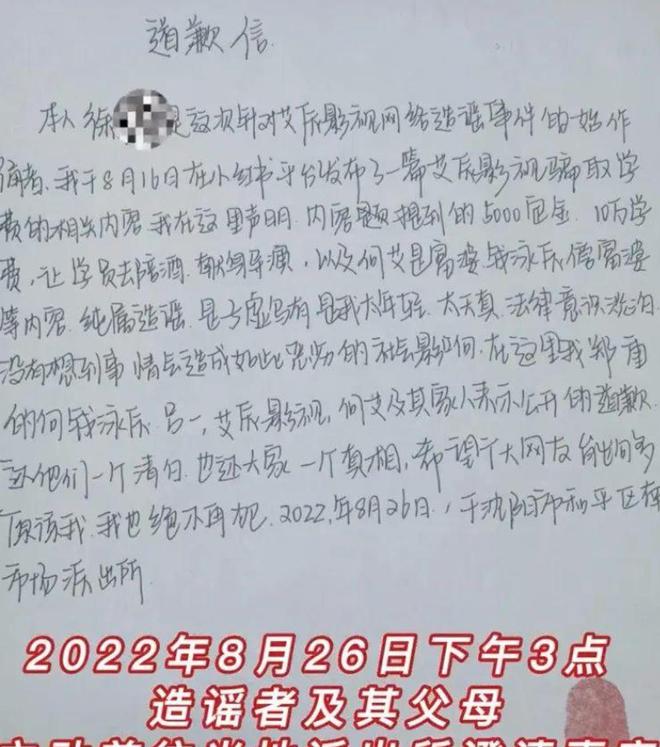 道歉信
本人徐 是这次针对艾辰影视网络造谣事件的始作
俑者.我于8月16日在小红书平台发布了一篇艾辰影视骗取学
费的相关内容.我在这里声明.内容里提到的5000定金.10万学
费,让学员去陪酒.献身导演,以及何艾是富婆钱泳辰傍富婆
等内容.纯属造谣.是子虚乌有是我太年轻.太天真.法律意识淡泊.
没有想到事情会造成如此恶劣的社会影响.在这里我郑重
的向钱泳辰.吕一,艾辰影视,何艾及其家人表示公开的道歉.
还他们一个清白.也还大家一个真相,希望广大网友能够多
原谅我.我也绝不再犯.2022年8月26日.,于沈阳市和平区
市场派出所.
2022年8月26日下午3点
造谣者及其父母
主动前往当地派出所澄清事实